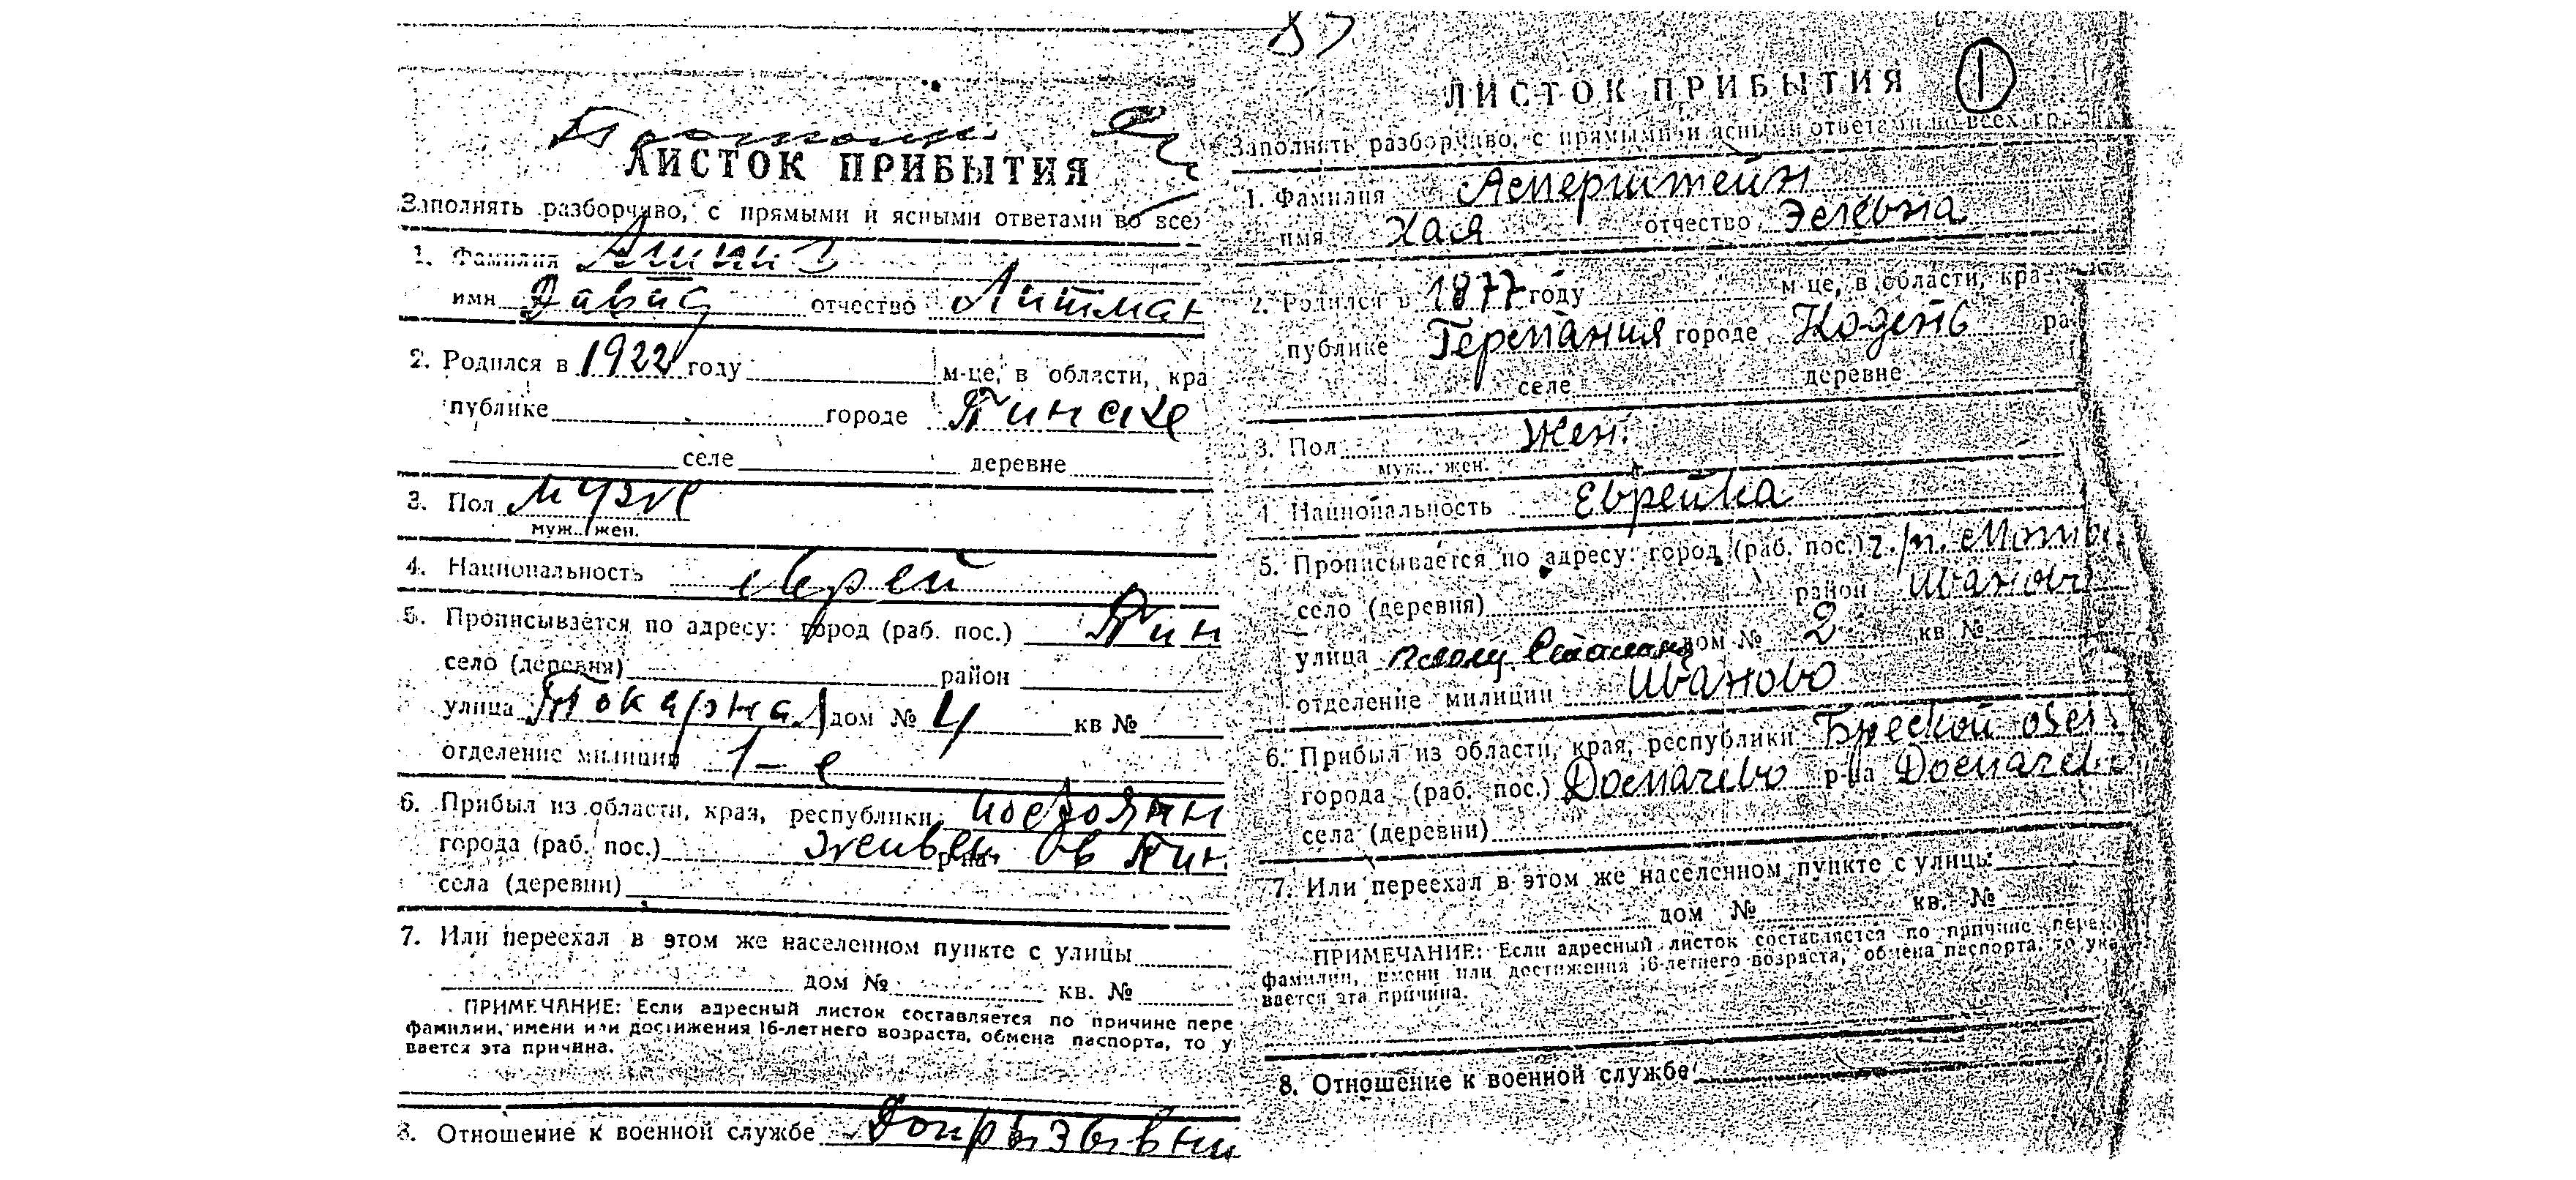 ЛИСТОК ПРИБЫТИЯ
Заполнять разборчиво, с прямыми и ясными ответами во все
1. Фамилия
имя Давид отчество Литман
2. Родился в 1922 году м-це, в области, кра
публике городе Пинске
селе деревне
3. Пол муж
муж. жен.
4. Национальность еврей
5. Прописывается по адресу: город (раб. пос.) Пин
село (деревня) район
улица Токарная дом № 4 кв №
отделение милиции 1-е
6. Прибыл из области, края, республики
города (раб. пос.) р-на Пин
села (деревни)
7. Или переехал в этом же населенном пункте с улицы
дом № кв. №
ПРИМЕЧАНИЕ: Если адресный листок составляется по причине пере
фамилии, имени или достижения 16-летнего возраста, обмена паспорта, то у
вается эта причина.
8. Отношение к военной службе Допрызывни
87
ЛИСТОК ПРИБЫТИЯ 1
Заполнять разборчиво, с прямыми и ясными ответами во всех гра
1. Фамилия Асперштейн
имя Хая отчество
2. Родился в 1877 году м-це, в области, кра-
публике Германия городе Кодень ра
селе деревне
3. Пол жен.
муж. жен.
4. Национальность Еврейка
5. Прописывается по адресу: город (раб. пос.) г.п. Мот
село (деревня) район Иваново
улица дом № 2 кв №
отделение милиции Иваново
6. Прибыл из области, края, республики Бреской обл
города (раб. пос.) Домачево р-на Домачев
села (деревни)
7. Или переехал в этом же населенном пункте с улицы
дом № кв. №
ПРИМЕЧАНИЕ: Если адресный листок составляется по причине пере
фамилии, имени или достижения 16-летнего возраста, обмена паспорта, то ука
вается эта причина.
8. Отношение к военной службе